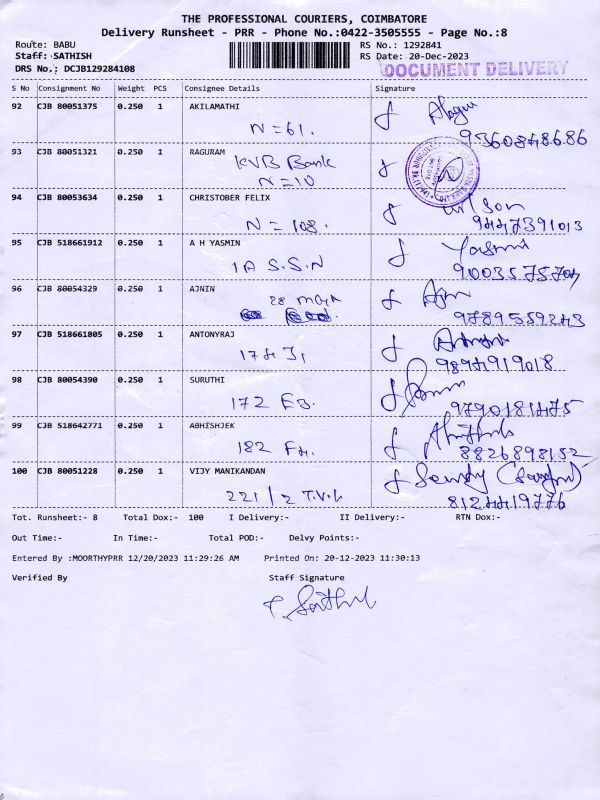 THE PROFESSIONAL COURIERS, COIMBATORE
Delivery Runsheet - PRR - Phone No.:0422-3505555 - Page No.:8
Route: BABU
RS No.: 1292841
Staff: SATHISH
RS Date: 20-Dec-2023
DRS No.: DCJB129284108
DOCUMENT DELIVERY
S No Consignment No Weight PCS Consignee Details Signature
92 CJB 80051375 0.250 1 AKILAMATHI
N = 61.
93 CJB 80051321 0.250 1 RAGURAM
KVB Bank
N = 10
94 CJB 80053634 0.250 1 CHRISTOBER FELIX
N = 108.
95 CJB 518661912 0.250 1 A H YASMIN
Yasmi
1A S.S.N
96 CJB 80054329 0.250 1 AJNIN
28
97 CJB 518661805 0.250 1 ANTONYRAJ
98 CJB 80054390 0.250 1 SURUTHI
172 EB.
99 CJB 518642771 0.250 1 ABHISHJEK
182
8826898152
100 CJB 80051228 0.250 1 VIJY MANIKANDAN
221/2 T.V.L
8124419776
Tot. Runsheet:- 8 Total Dox:- 100 I Delivery:- II Delivery:- RTN Dox:-
Out Time:- In Time:- Total POD:- Delvy Points:-
Entered By :MOORTHYPRR 12/20/2023 11:29:26 AM Printed On: 20-12-2023 11:30:13
Verified By Staff Signature